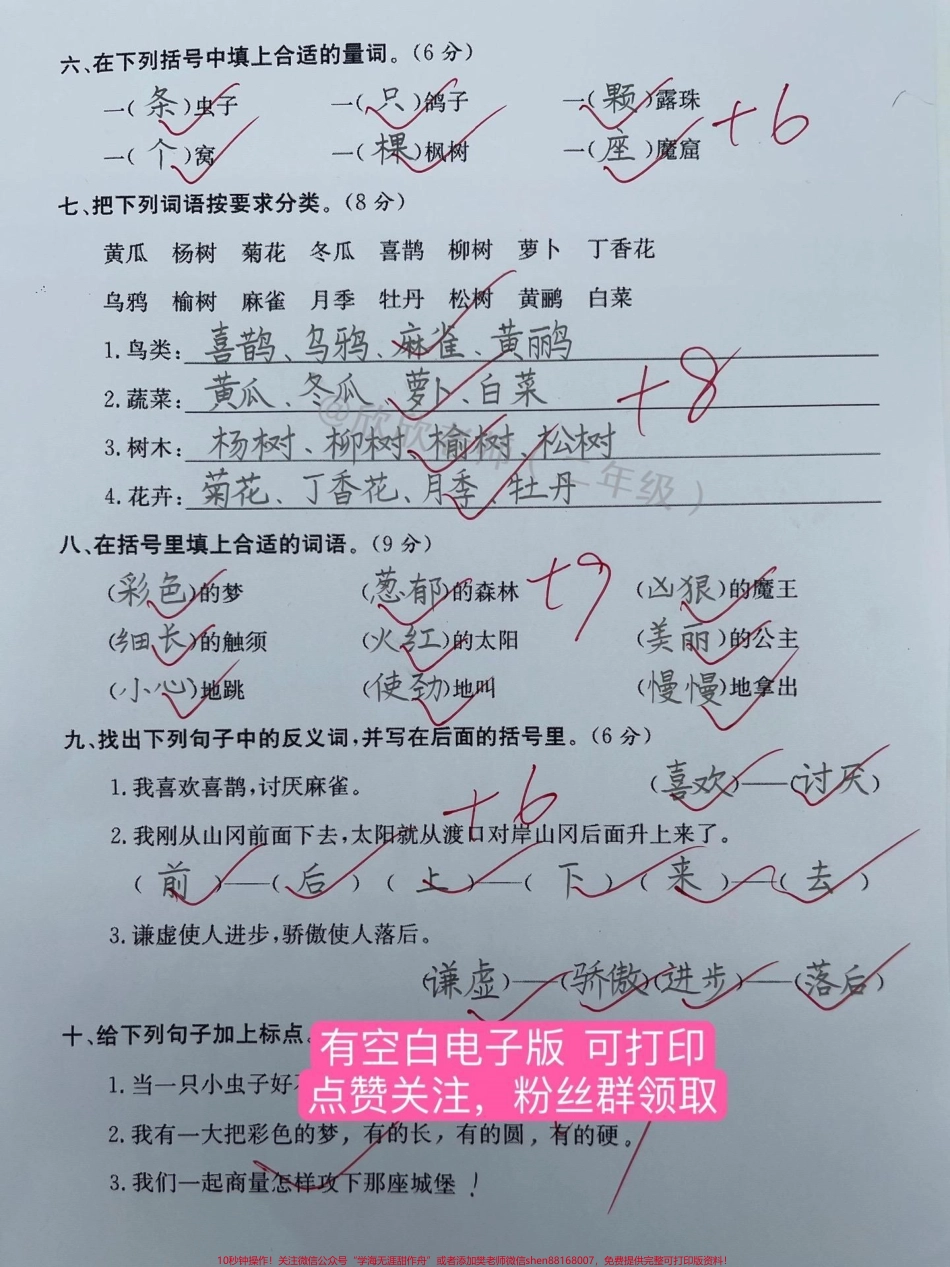 六、在下列括号中填上合适的量词。(6分)
一(条)虫子 一(只)鸽子 一(颗)露珠
一(个)窝 一(棵)枫树 一(座)魔窟
+6
七、把下列词语按要求分类。(8分)
黄瓜 杨树 菊花 冬瓜 喜鹊 柳树 萝卜 丁香花
乌鸦 榆树 麻雀 月季 牡丹 松树 黄鹂 白菜
1.鸟类:喜鹊、乌鸦、麻雀、黄鹂
2.蔬菜:黄瓜、冬瓜、萝卜、白菜
+8
3.树木:杨树、柳树、榆树、松树
4.花卉:菊花、丁香花、月季、牡丹
八、在括号里填上合适的词语。(9分)
(彩色)的梦 (葱郁)的森林 (凶狠)的魔王
+9
(细长)的触须 (火红)的太阳 (美丽)的公主
(小心)地跳 (使劲)地叫 (慢慢)地拿出
九、找出下列句子中的反义词,并写在后面的括号里。(6分)
1.我喜欢喜鹊,讨厌麻雀。 (喜欢)—(讨厌)
+6
2.我刚从山冈前面下去,太阳就从渡口对岸山冈后面升上来了。
(前)—(后) (上)—(下) (来)—(去)
3.谦虚使人进步,骄傲使人落后。
(谦虚)—(骄傲)(进步)—(落后)
十、给下列句子加上标点。
有空白电子版 可打印
点赞关注，粉丝群领取
1.当一只小虫子好
2.我有一大把彩色的梦，有的长，有的圆，有的硬。
3.我们一起商量怎样攻下那座城堡！
10秒钟操作！关注微信公众号“学海无涯甜作舟”或者添加樊老师微信shen88168007，免费提供完整可打印版资料！